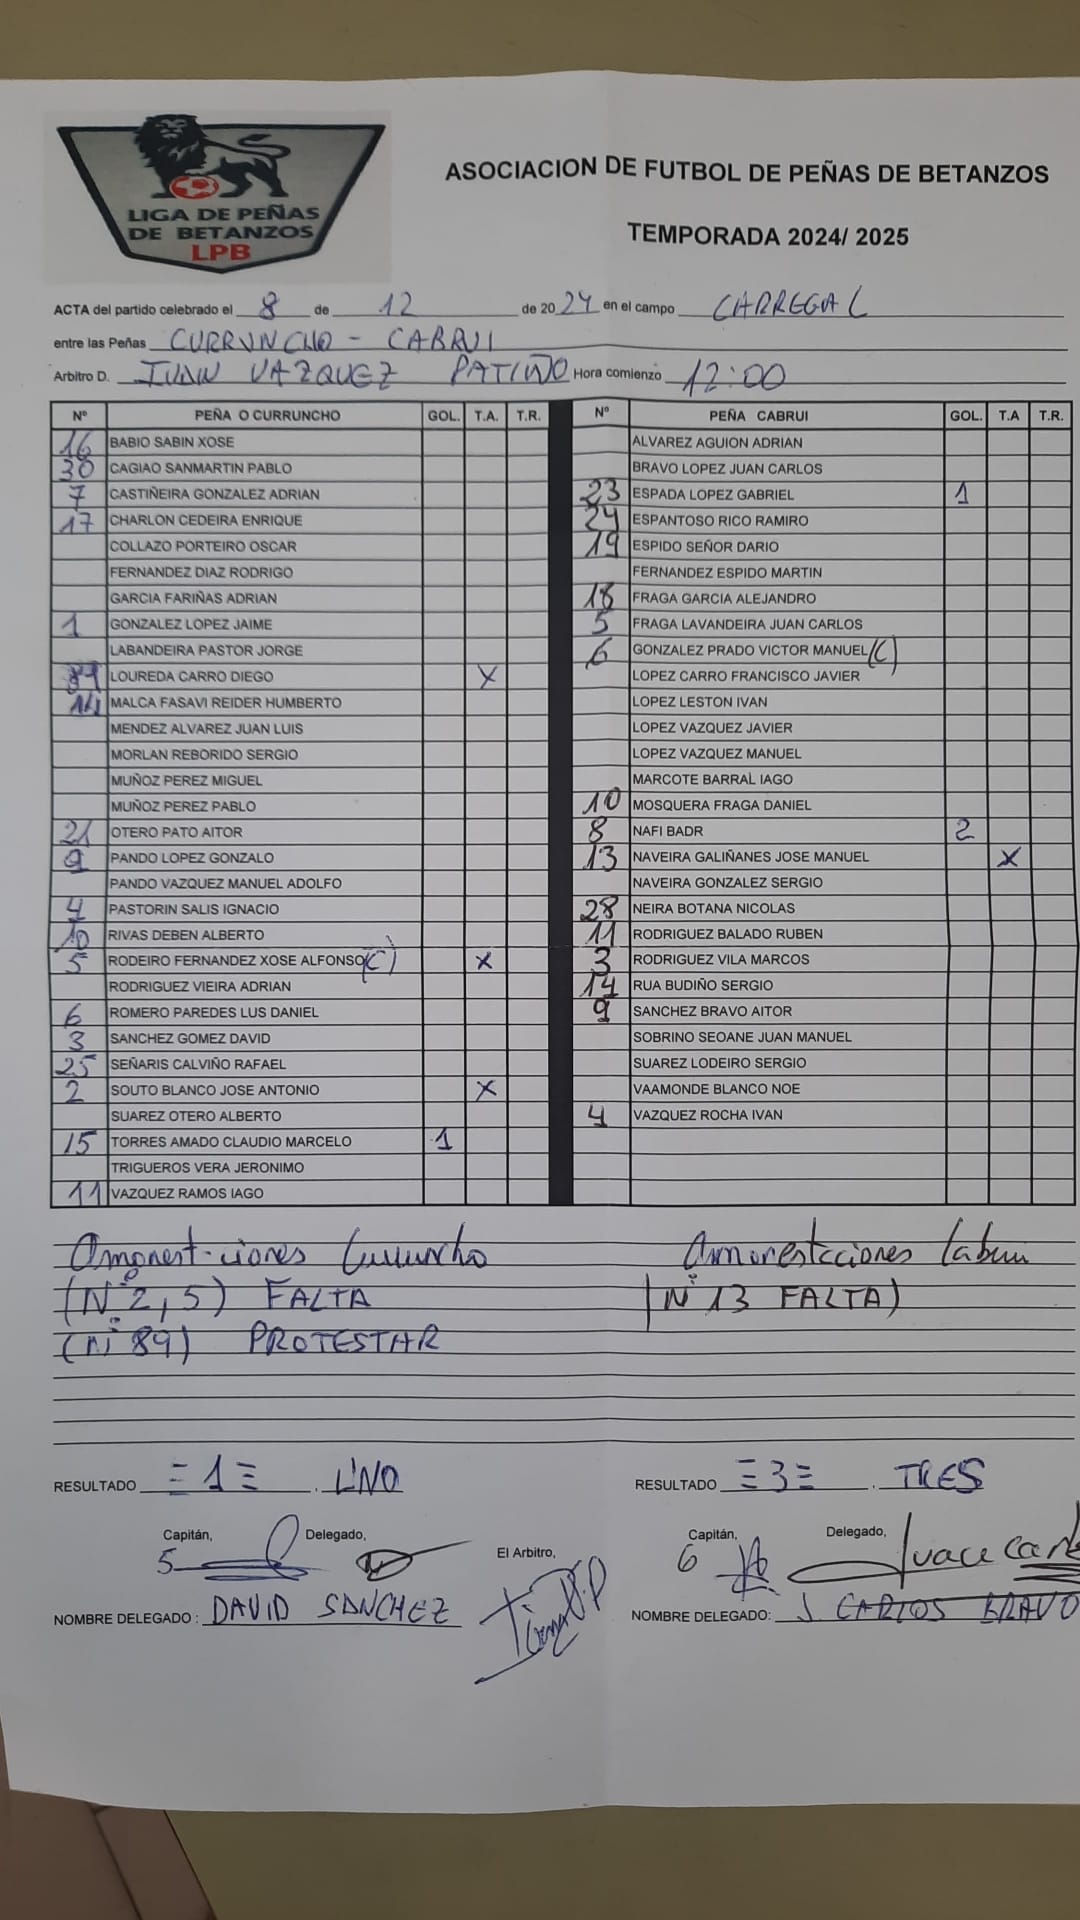 LIGA DE PEÑAS
DE BETANZOS
LPB
ASOCIACION DE FUTBOL DE PEÑAS DE BETANZOS
TEMPORADA 2024/ 2025
ACTA del partido celebrado el 8 de 12 de 2024 en el campo CARREGAL
entre las Peñas CURRUNCHO - CABRUI
Arbitro D. IVAN VAZQUEZ PATIÑO Hora comienzo 12:00
Nº PEÑA O CURRUNCHO GOL. T.A. T.R. Nº PEÑA CABRUI GOL. T.A T.R.
16 BABIO SABIN XOSE ALVAREZ AGUION ADRIAN
30 CAGIAO SANMARTIN PABLO BRAVO LOPEZ JUAN CARLOS
7 CASTIÑEIRA GONZALEZ ADRIAN 23 ESPADA LOPEZ GABRIEL 1
17 CHARLON CEDEIRA ENRIQUE 24 ESPANTOSO RICO RAMIRO
COLLAZO PORTEIRO OSCAR 19 ESPIDO SEÑOR DARIO
FERNANDEZ DIAZ RODRIGO FERNANDEZ ESPIDO MARTIN
GARCIA FARIÑAS ADRIAN 18 FRAGA GARCIA ALEJANDRO
1 GONZALEZ LOPEZ JAIME 5 FRAGA LAVANDEIRA JUAN CARLOS
LABANDEIRA PASTOR JORGE 6 GONZALEZ PRADO VICTOR MANUEL (C)
89 LOUREDA CARRO DIEGO X LOPEZ CARRO FRANCISCO JAVIER
14 MALCA FASAVI REIDER HUMBERTO LOPEZ LESTON IVAN
MENDEZ ALVAREZ JUAN LUIS LOPEZ VAZQUEZ JAVIER
MORLAN REBORIDO SERGIO LOPEZ VAZQUEZ MANUEL
MUÑOZ PEREZ MIGUEL MARCOTE BARRAL IAGO
MUÑOZ PEREZ PABLO 10 MOSQUERA FRAGA DANIEL
21 OTERO PATO AITOR 8 NAFI BADR 2
9 PANDO LOPEZ GONZALO 13 NAVEIRA GALIÑANES JOSE MANUEL X
PANDO VAZQUEZ MANUEL ADOLFO NAVEIRA GONZALEZ SERGIO
4 PASTORIN SALIS IGNACIO 28 NEIRA BOTANA NICOLAS
10 RIVAS DEBEN ALBERTO 11 RODRIGUEZ BALADO RUBEN
5 RODEIRO FERNANDEZ XOSE ALFONSO (C) X 3 RODRIGUEZ VILA MARCOS
RODRIGUEZ VIEIRA ADRIAN 14 RUA BUDIÑO SERGIO
6 ROMERO PAREDES LUS DANIEL 9 SANCHEZ BRAVO AITOR
3 SANCHEZ GOMEZ DAVID SOBRINO SEOANE JUAN MANUEL
25 SEÑARIS CALVIÑO RAFAEL SUAREZ LODEIRO SERGIO
2 SOUTO BLANCO JOSE ANTONIO X VAAMONDE BLANCO NOE
SUAREZ OTERO ALBERTO 4 VAZQUEZ ROCHA IVAN
15 TORRES AMADO CLAUDIO MARCELO 1
TRIGUEROS VERA JERONIMO
11 VAZQUEZ RAMOS IAGO
Amonestaciones Curruncho Amonestaciones Cabrui
(Nº 2, 5) FALTA (Nº 13 FALTA)
(nº 89) PROTESTAR
RESULTADO = 1 = . UNO RESULTADO = 3 = . TRES
Capitán, Delegado, El Arbitro, Capitán, Delegado,
5 6
NOMBRE DELEGADO : DAVID SANCHEZ NOMBRE DELEGADO: J. CARLOS BRAVO